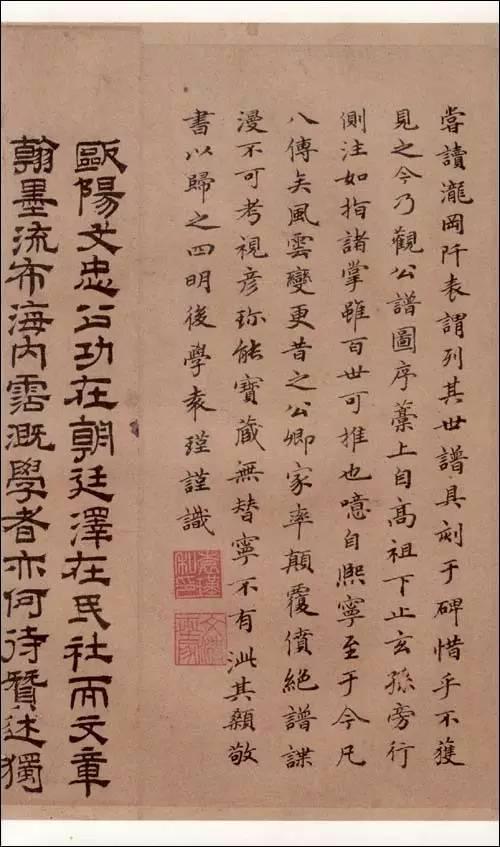 嘗讀瀧岡阡表謂列其世譜具刻于碑惜乎不獲
見之今乃觀公譜圖序藁上自高祖下止玄孫旁行
側注如指諸掌雖百世可推也噫自熙寧至于今凡
八傳矣風雲變更昔之公卿家率顛覆僨絕譜諜
漫不可考視彦珎能寶藏無替寧不有泚其顙敬
書以歸之四明後學袁瑾謹識
歐陽文忠公功在朝廷澤在民社而文章
翰墨流布海內霑溉學者亦何待贊述獨